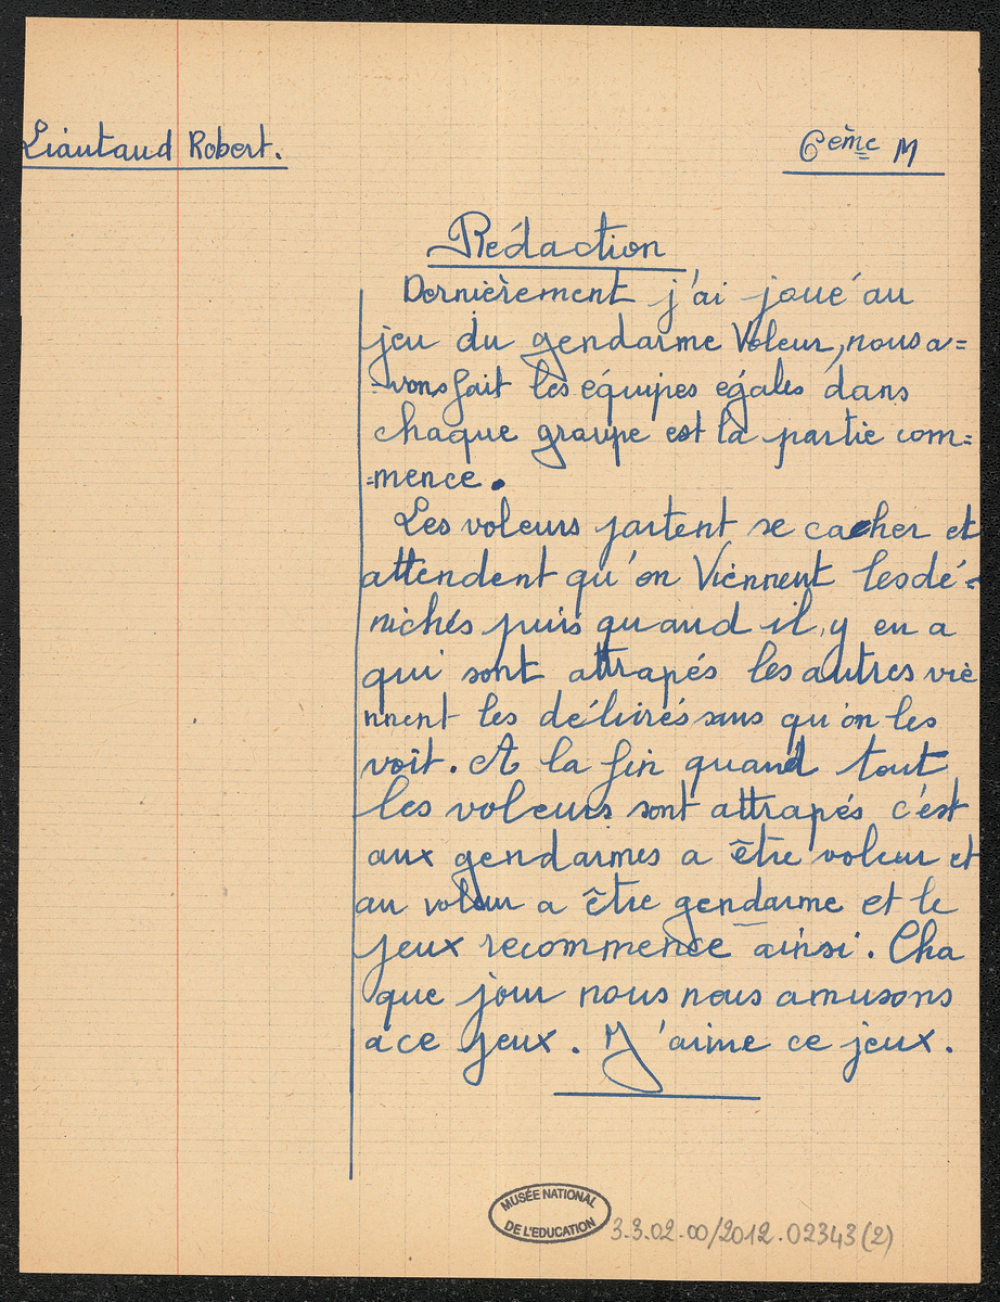 Liautaud Robert.
6ème M
Rédaction
Dernièrement j'ai joué au
jeu du gendarme Voleur, nous a=
=vons fait les équipes egales dans
chaque groupe est la partie com=
=mence.
Les voleurs partent se cacher et
attendent qu'on Viennent les dé=
nichés puis quand il y en a
qui sont attrapés les autres viè
nnent les délivrés sans qu'on les
voit. A la fin quand tout
les voleurs sont attrapés c'est
aux gendarmes a être voleur et
au voleur a être gendarme et le
jeux recommence ainsi. Cha
que jour nous nous amusons
a ce jeux. J'aime ce jeux.
MUSÉE NATIONAL
DE L'EDUCATION
3.3.02.00/2012.02343(2)